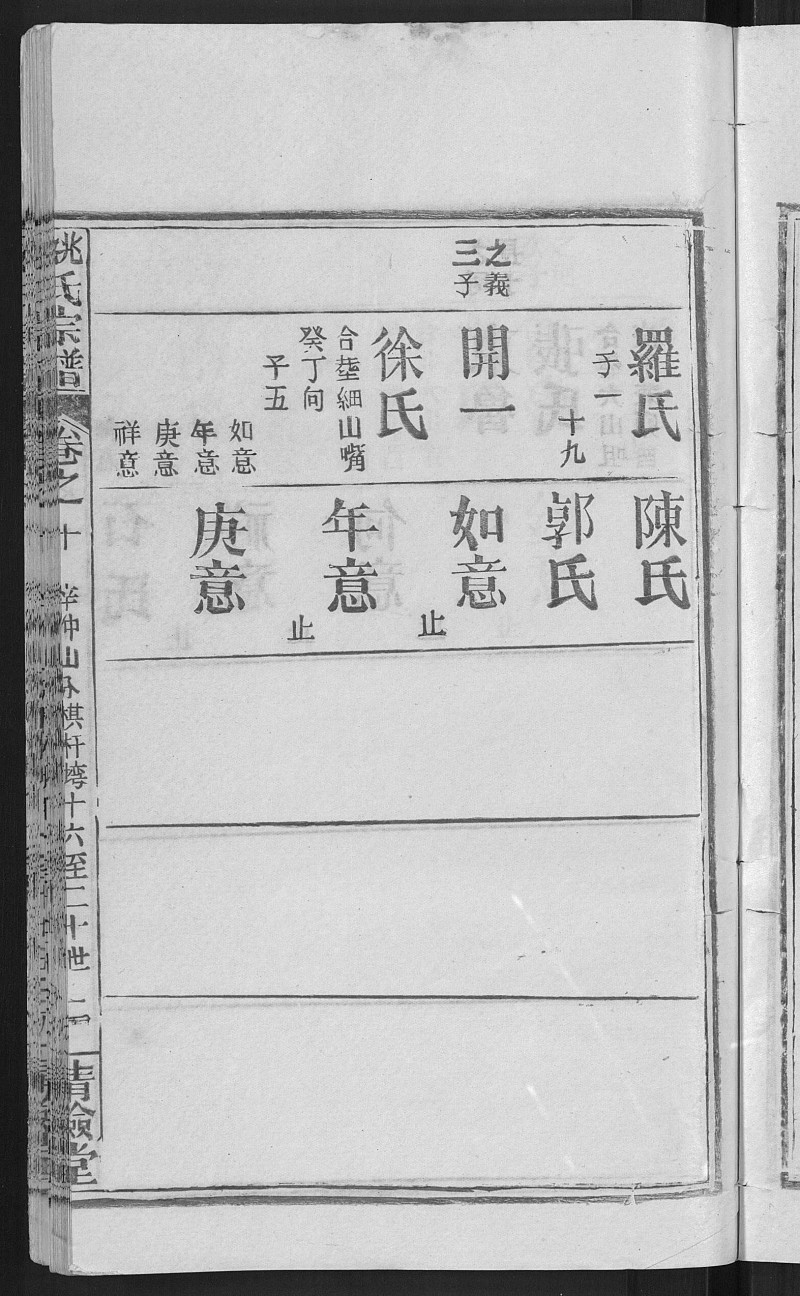 之義
三子
羅氏
子一
十九
開一
徐氏
合塟細山嘴
癸丁向
子五
如意
年意
庚意
祥意
陳氏
郭氏
如意
止
年意
止
庚意
姚氏宗譜
卷之十
山外棋杆塆十六至二十世
清儉堂